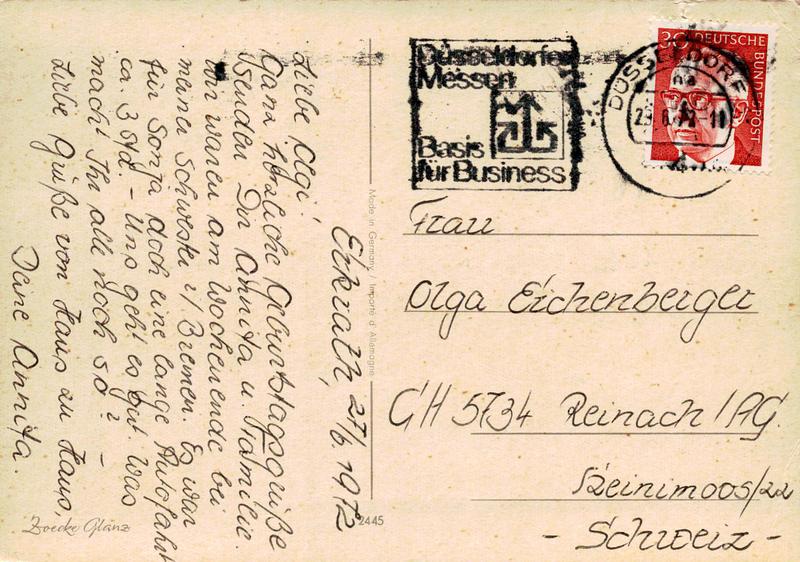 Erkrath, 27/6. 1972
Liebe Olgi!
Ganz herzliche Geburtstagsgrüße
senden Dir Annita u. Familie.
Wir waren am Wochenende bei
meiner Schwester i/ Bremen. Es war
für Sonja doch eine lange Autofahrt
ca. 3 Std. - Uns geht es gut. Was
macht Ihr alle noch so? -
Liebe Grüße von Haus zu Haus,
Deine Annita.
Zoecke Glanz
2445
Made in Germany / Importé d'Allemagne
Düsseldorfer
Messen
Basis
für Business
DÜSSELDORF
30 DEUTSCHE BUNDESPOST
Frau
Olga Eichenberger
CH 5734 Reinach/AG.
/22
- Schweiz -